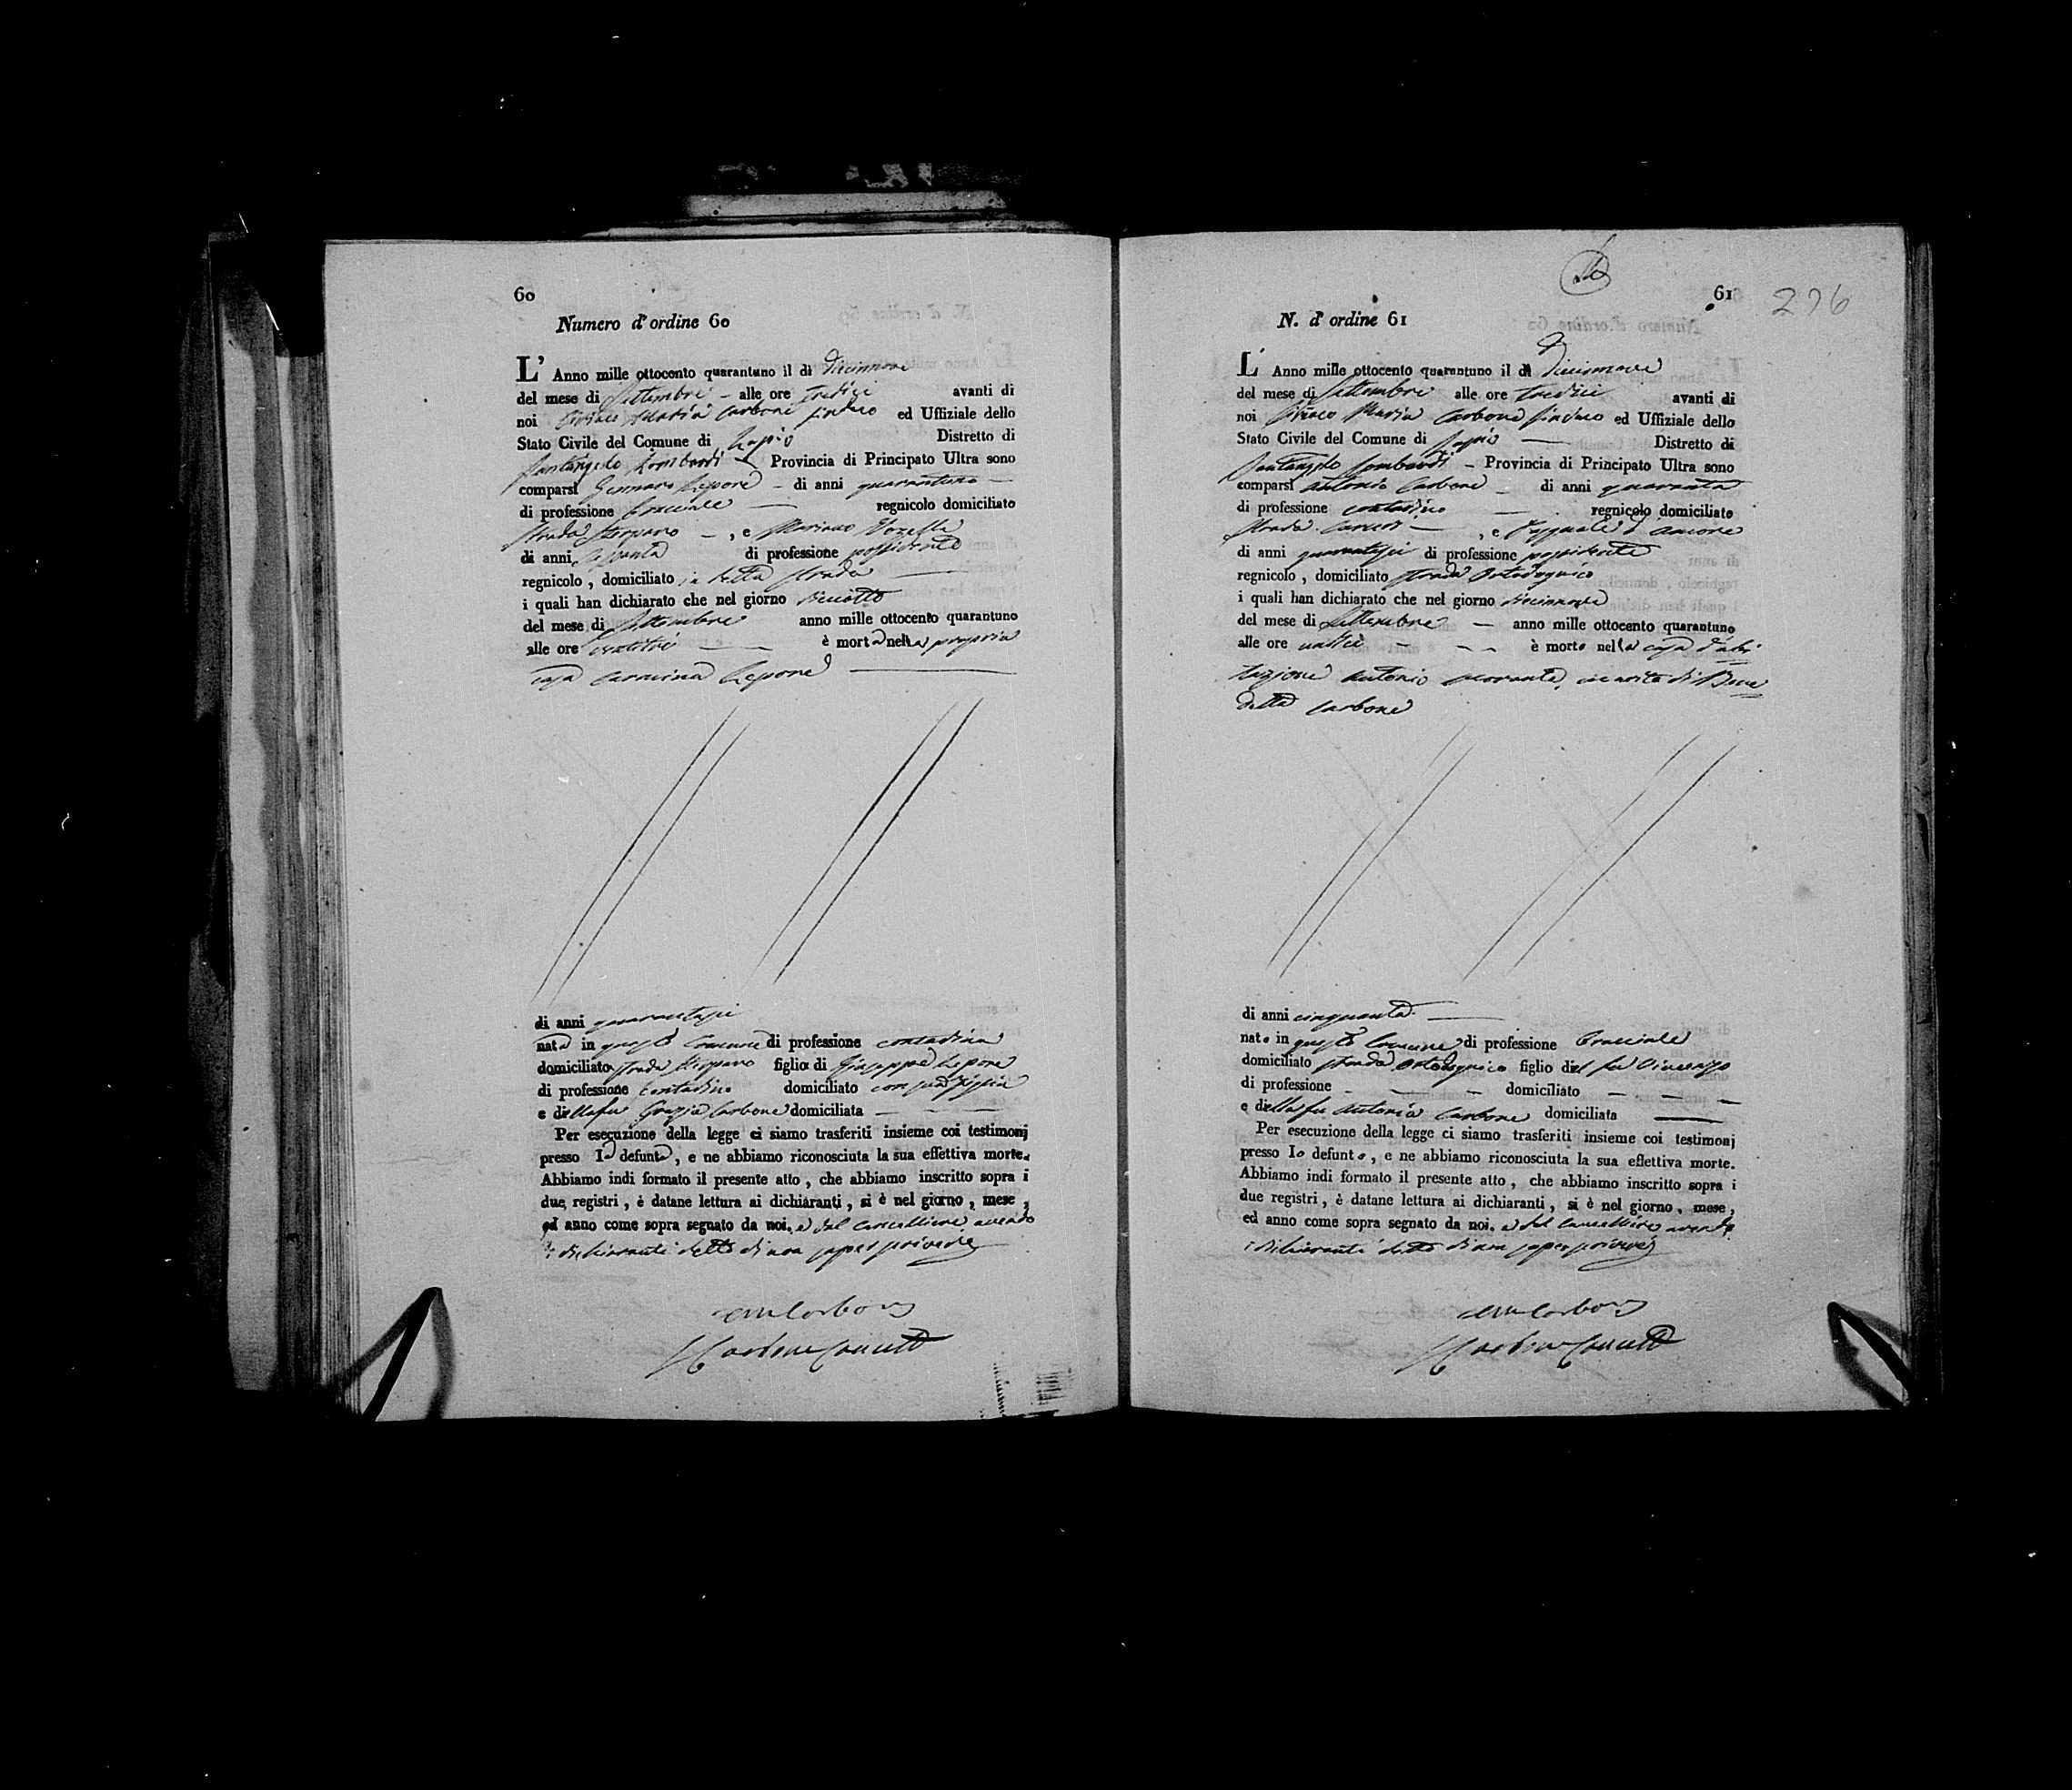 60
Numero d' ordine 60
L' Anno mille ottocento quarantuno il dì diciannove
del mese di Settembre - alle ore tredici avanti di
noi Maria Carbone Sindaco ed Uffiziale dello
Stato Civile del Comune di Lapio Distretto di
Santangelo Lombardi - Provincia di Principato Ultra sono
comparsi Gennaro Lepore - di anni quarantuno -
di professione bracciale - regnicolo domiciliato
strada - , e Mariano
di anni di professione possidente
regnicolo , domiciliato in detta strada -
i quali han dichiarato che nel giorno diciotto
del mese di Settembre anno mille ottocento quarantuno
alle ore - - è morta nella propria
casa Carmina Lepore -
di anni quarantasei
nata in questo Comune di professione contadina
domiciliata strada figlia di Giuseppe Lepore
di professione contadino domiciliato con sua figlia
e della fu Grazia Carbone domiciliata - - -
Per esecuzione della legge ci siamo trasferiti insieme coi testimonj
presso la defunta , e ne abbiamo riconosciuta la sua effettiva morte.
Abbiamo indi formato il presente atto , che abbiamo inscritto sopra i
due registri , è datane lettura ai dichiaranti , si è nel giorno , mese ,
ed anno come sopra segnato da noi. e dal cancelliere avendo
i dichiaranti detto di non saper scrivere
Carbone
Carbone
61
276
N. d' ordine 61
L' Anno mille ottocento quarantuno il dì diciannove
del mese di Settembre alle ore tredici avanti di
noi Maria Carbone Sindaco ed Uffiziale dello
Stato Civile del Comune di Lapio - Distretto di
Santangelo Lombardi - Provincia di Principato Ultra sono
comparsi Antonio Carbone - di anni quaranta
di professione contadino - regnicolo domiciliato
strada - , e Pasquale d'
di anni quarantasei di professione possidente
regnicolo , domiciliato strada
i quali han dichiarato che nel giorno diciannove
del mese di Settembre - anno mille ottocento quarantuno
alle ore - - - è morto nella casa d'abi
tazione Antonio marito di Bene
detta Carbone
di anni cinquanta -
nato in questo Comune di professione bracciale
domiciliato strada figlio del fu
di professione - - - domiciliato - - -
e della fu Antonia Carbone domiciliata -
Per esecuzione della legge ci siamo trasferiti insieme coi testimonj
presso lo defunto , e ne abbiamo riconosciuta la sua effettiva morte.
Abbiamo indi formato il presente atto , che abbiamo inscritto sopra i
due registri , è datane lettura ai dichiaranti , si è nel giorno , mese ,
ed anno come sopra segnato da noi. e dal cancelliere avendo
i dichiaranti detto di non saper scrivere
Carbone
Carbone